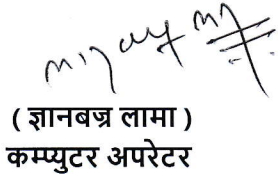 ( ज्ञानबज्र लामा )
कम्प्युटर अपरेटर